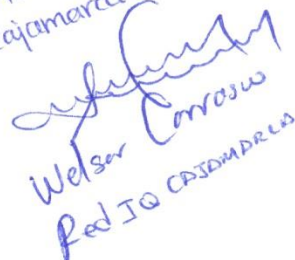 Cajamarca
Welser Carrasco
Red IQ CAJAMARCA